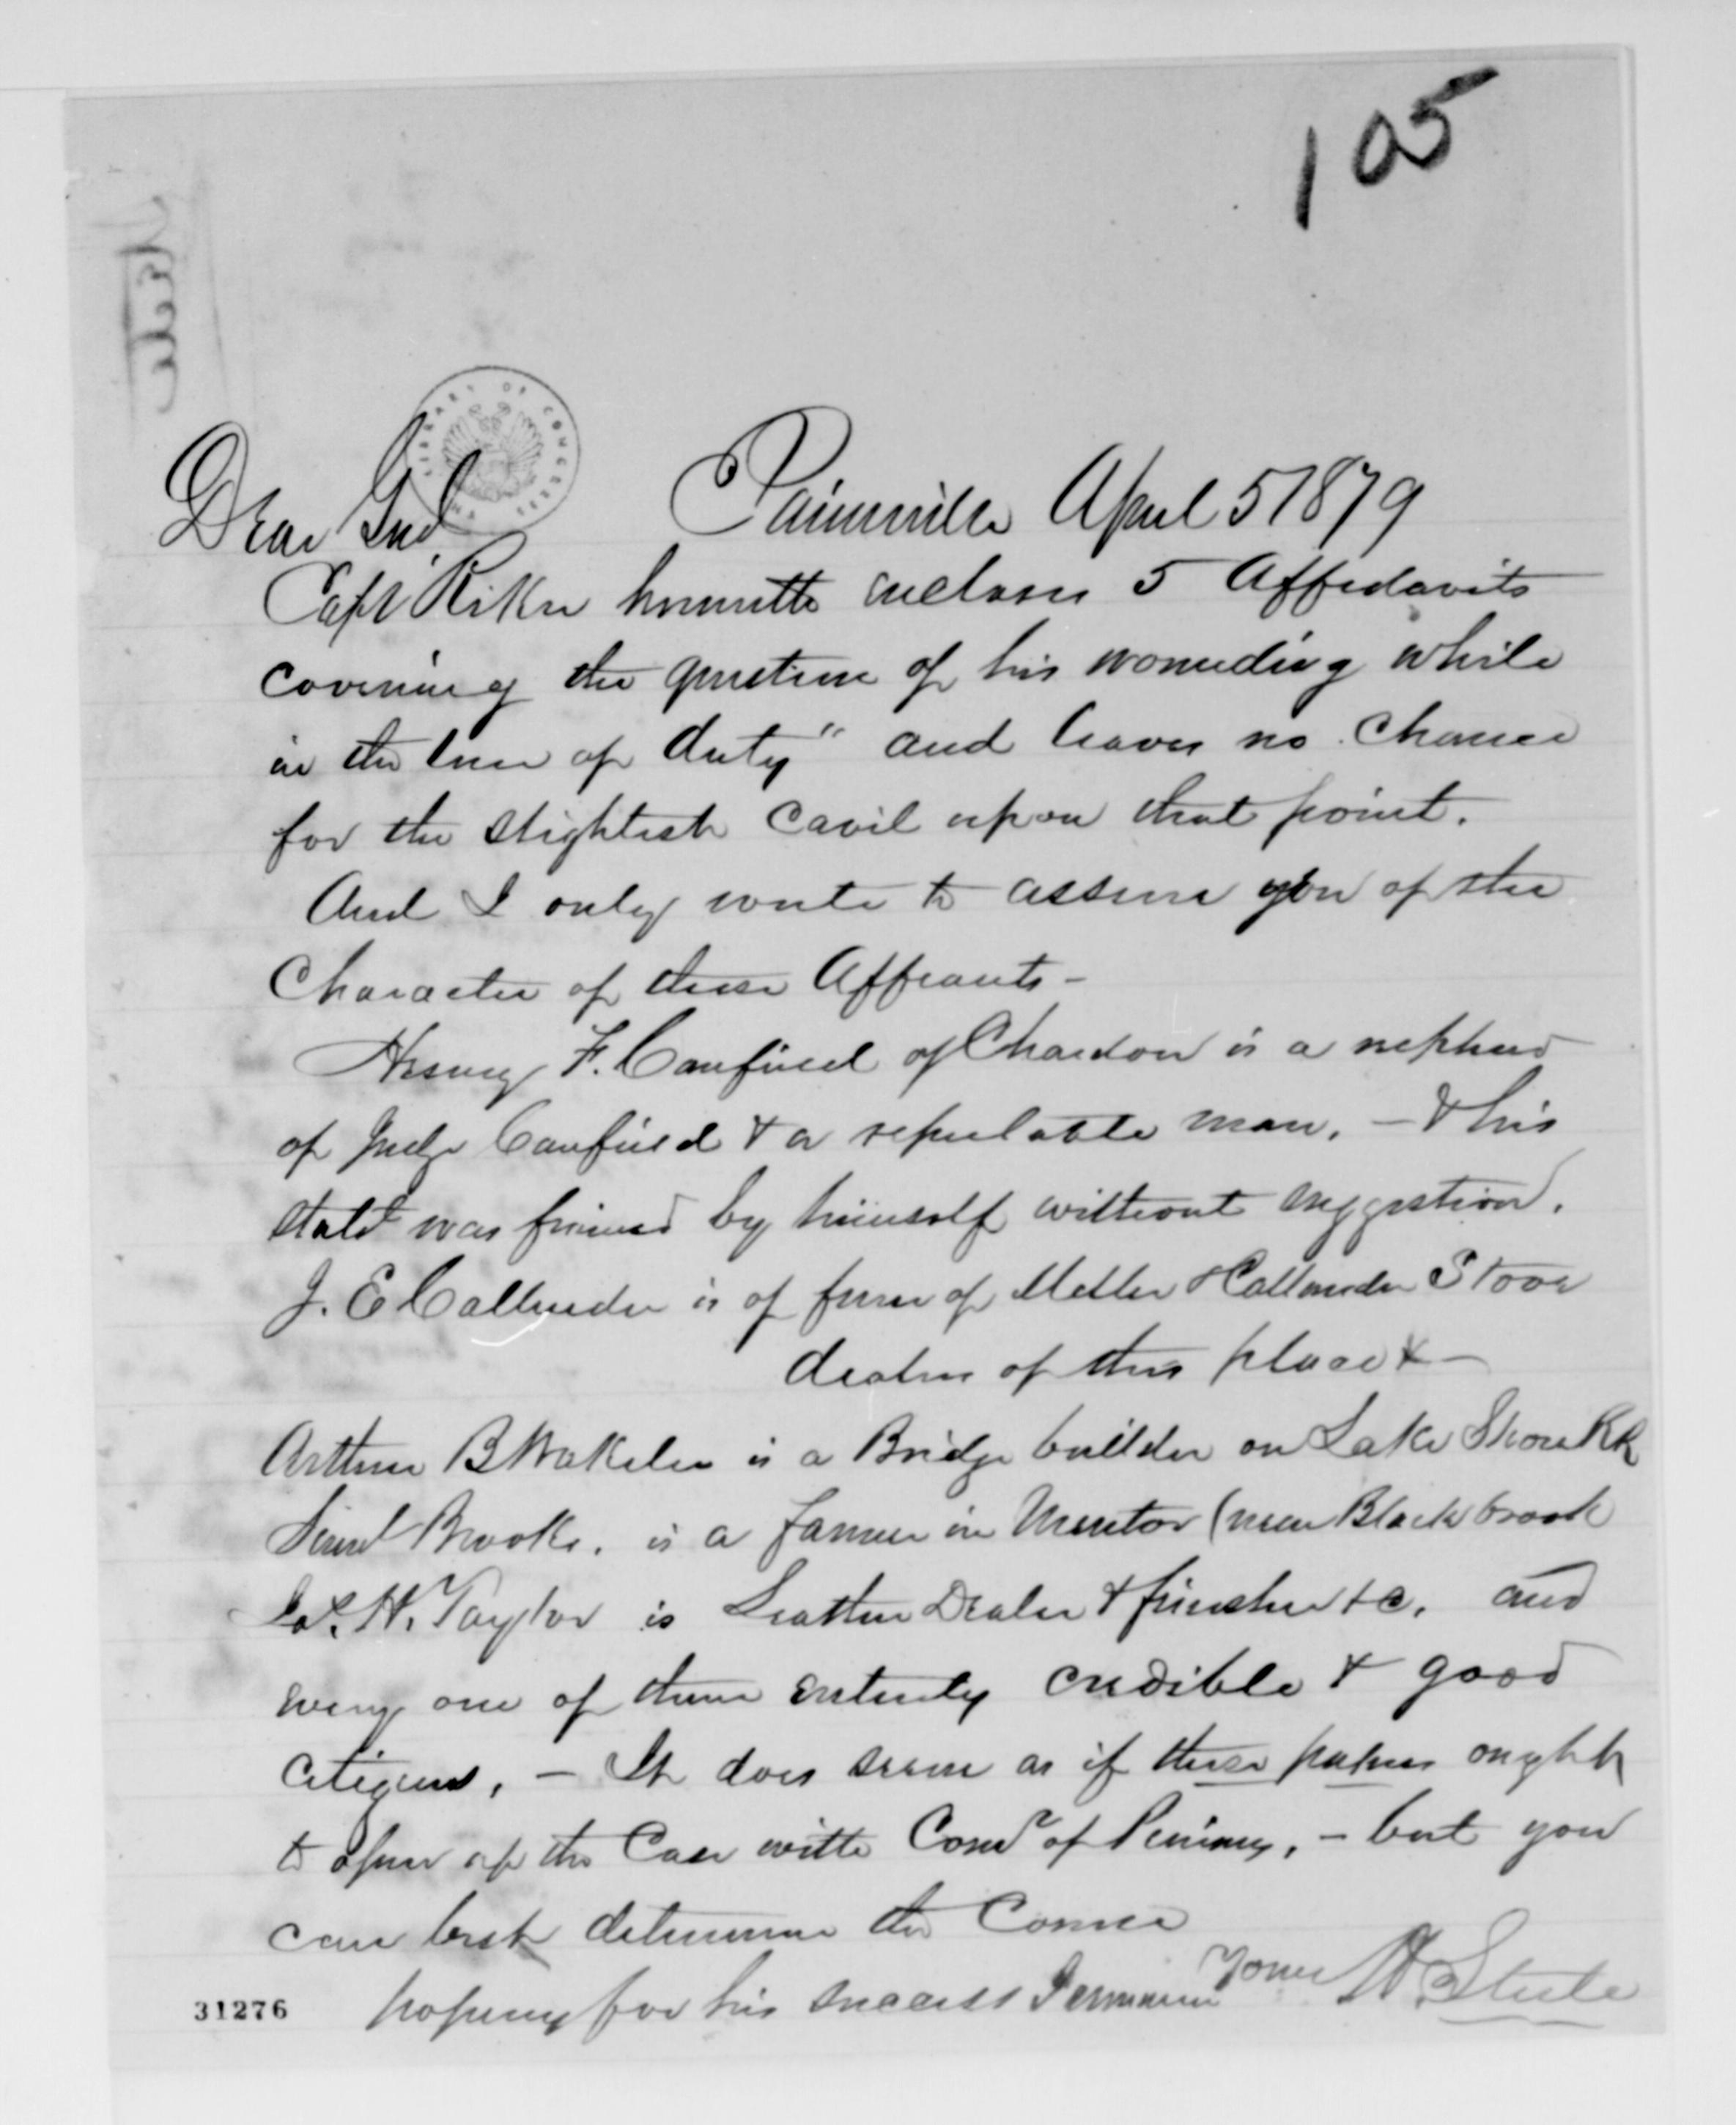 105
Steele
THE LIBRARY OF CONGRESS
Dear Genl Painesville April 5 1879
Capt Riker herewith encloses 5 Affidavits
covering the question of his wounding while
in the line of duty" and leaves no chance
for the slightest cavil upon that point.
And I only write to assure you of the
Character of these Affiants -
Henry F. Canfield of Chardon is a nephew
of Judge Canfield & a reputable man, - & his
statt was framed by himself without suggestion.
J. E Callender is of firm of & Callender Stove
dealers of this place & -
Arthur B Wakelee is a Bridge builder on Lake Shore RR
Brooks. is a farmer in Mentor (near Black brook
Col. H. Taylor is Leather Dealer & finisher &c. and
every one of them entirely credible & good
citizens, - It does seem as if these papers ought
to open up the Case with Comr of Pensions, - but you
can best determine the Course
hoping for his success I remain Yours W. Steele
31276